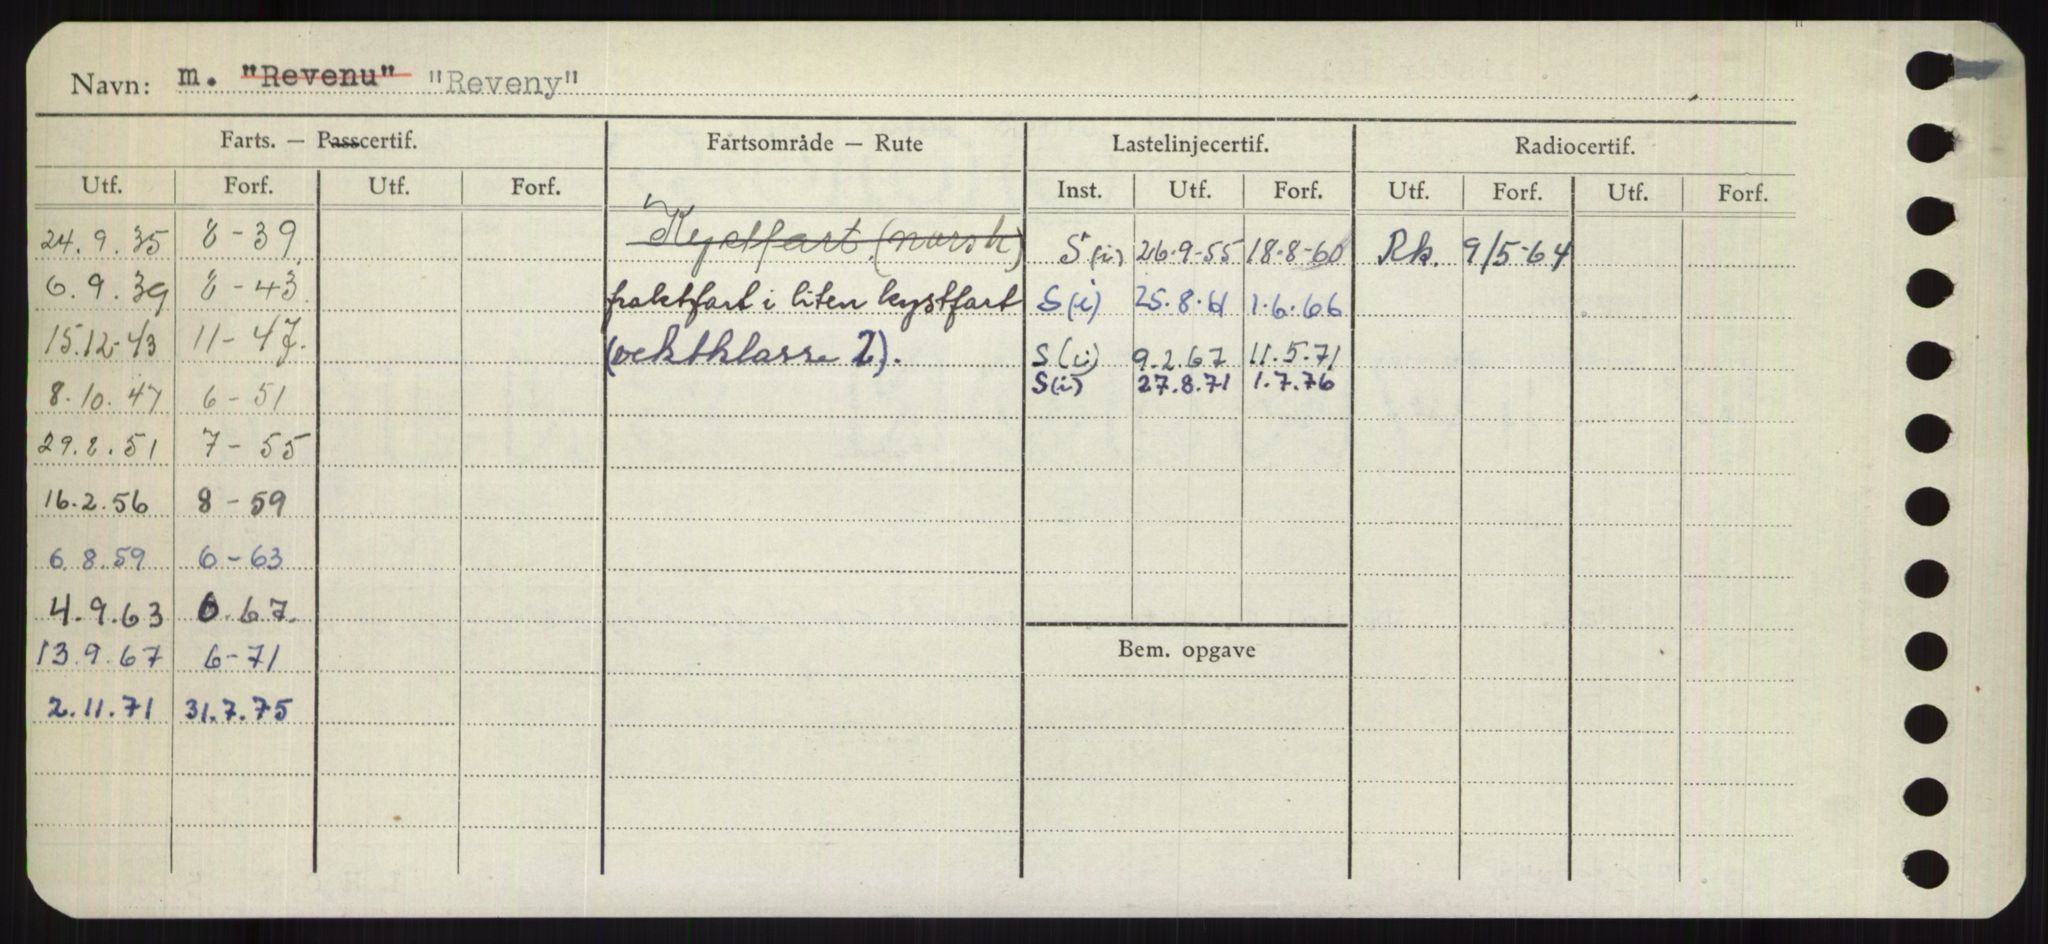 Navn: m. "Revenu" "Reveny"
Farts. — Passcertif. Fartsområde — Rute Lastelinjecertif. Radiocertif.
Utf. Forf. Utf. Forf. Inst. Utf. Forf. Utf. Forf. Utf. Forf.
24.9.35 8-39 Kystfart (norsk) S(i) 26.9-55 18.8-60 Rk. 9/5-64
6.9.39 8-43 fraktfart i liten kystfart S(i) 25.8.61 1.6.66
15.12-43 11-47. (vektklasse 2). S(i) 9.2.67 11.5.71
S(i) 27.8.71 1.7.76
8.10.47 6-51
29.8.51 7-55
16.2.56 8-59
6.8.59 6-63
4.9.63 6.67.
13.9.67 6-71
Bem. opgave
2.11.71 31.7.75